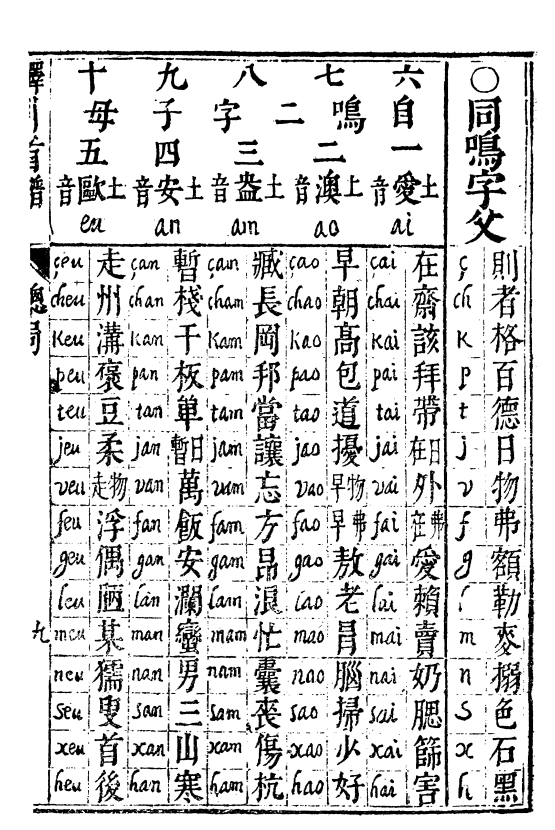 〇同鳴字父
則者格百德日物弗額勒麥搦色石黑
ç ch k p t j v f g l m n s x h
六 七 八 九 十
自 鳴 二 字 子 母
一 二 三 四 五
土音愛 ai
在齋該拜帶日在外弗在愛賴賣奶腮篩害
çai chai kai pai tai jai vai fai gai lai mai nai sai xai hai
土音澳 ao
早朝高包道擾物早弗早敖老冐腦掃少好
çao chao kao pao tao jao vao fao gao lao mao nao sao xao hao
土音盎 am
臧長岡邦當讓忘方昂浪忙囊喪傷杭
çam cham kam pam tam jam vam fam gam lam mam nam sam xam ham
土音安 an
暫棧干板單日暫萬飯安瀾蠻男三山寒
çan chan kan pan tan jan van fan gan lan man nan san xan han
土音歐 eu
走州溝裒豆柔物走浮偶陋某獳叟首後
çeu cheu keu peu teu jeu veu feu geu leu meu neu seu xeu heu
譯引首譜
總局
九